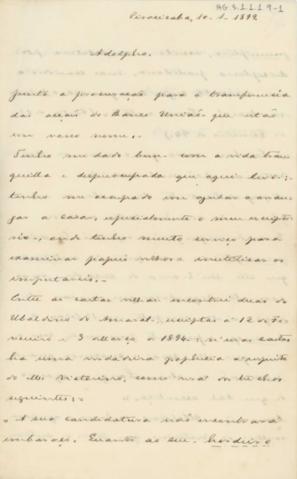 AG.5.1.1.1.9-1
Piracicaba, 10-1-1899.
Adolpho.
Junto a procuração para a transferencia
das acções do Banco União que estão
em vosso nome.
Tenho me dado bem com a vida tran-
quilla e despreoccupada que aqui levo;
tenho me occupado em ajudar a arran-
jar a casa, especialmente o meu escripto-
rio, onde tenho muito serviço para
examinar papeis velhos e inutilizar os
imprestaveis.
Entre as cartas velhas encontrei duas do
Ubaldino do Amaral, escriptas a 12 de Fe-
vereiro e 3 de Março de 1894; n'essas cartas
ha uma verdadeira prophecia a respeito
do, como verá dos trechos
seguintes:
"A sua candidatura não encontrará
embaraços. Quanto ao seu